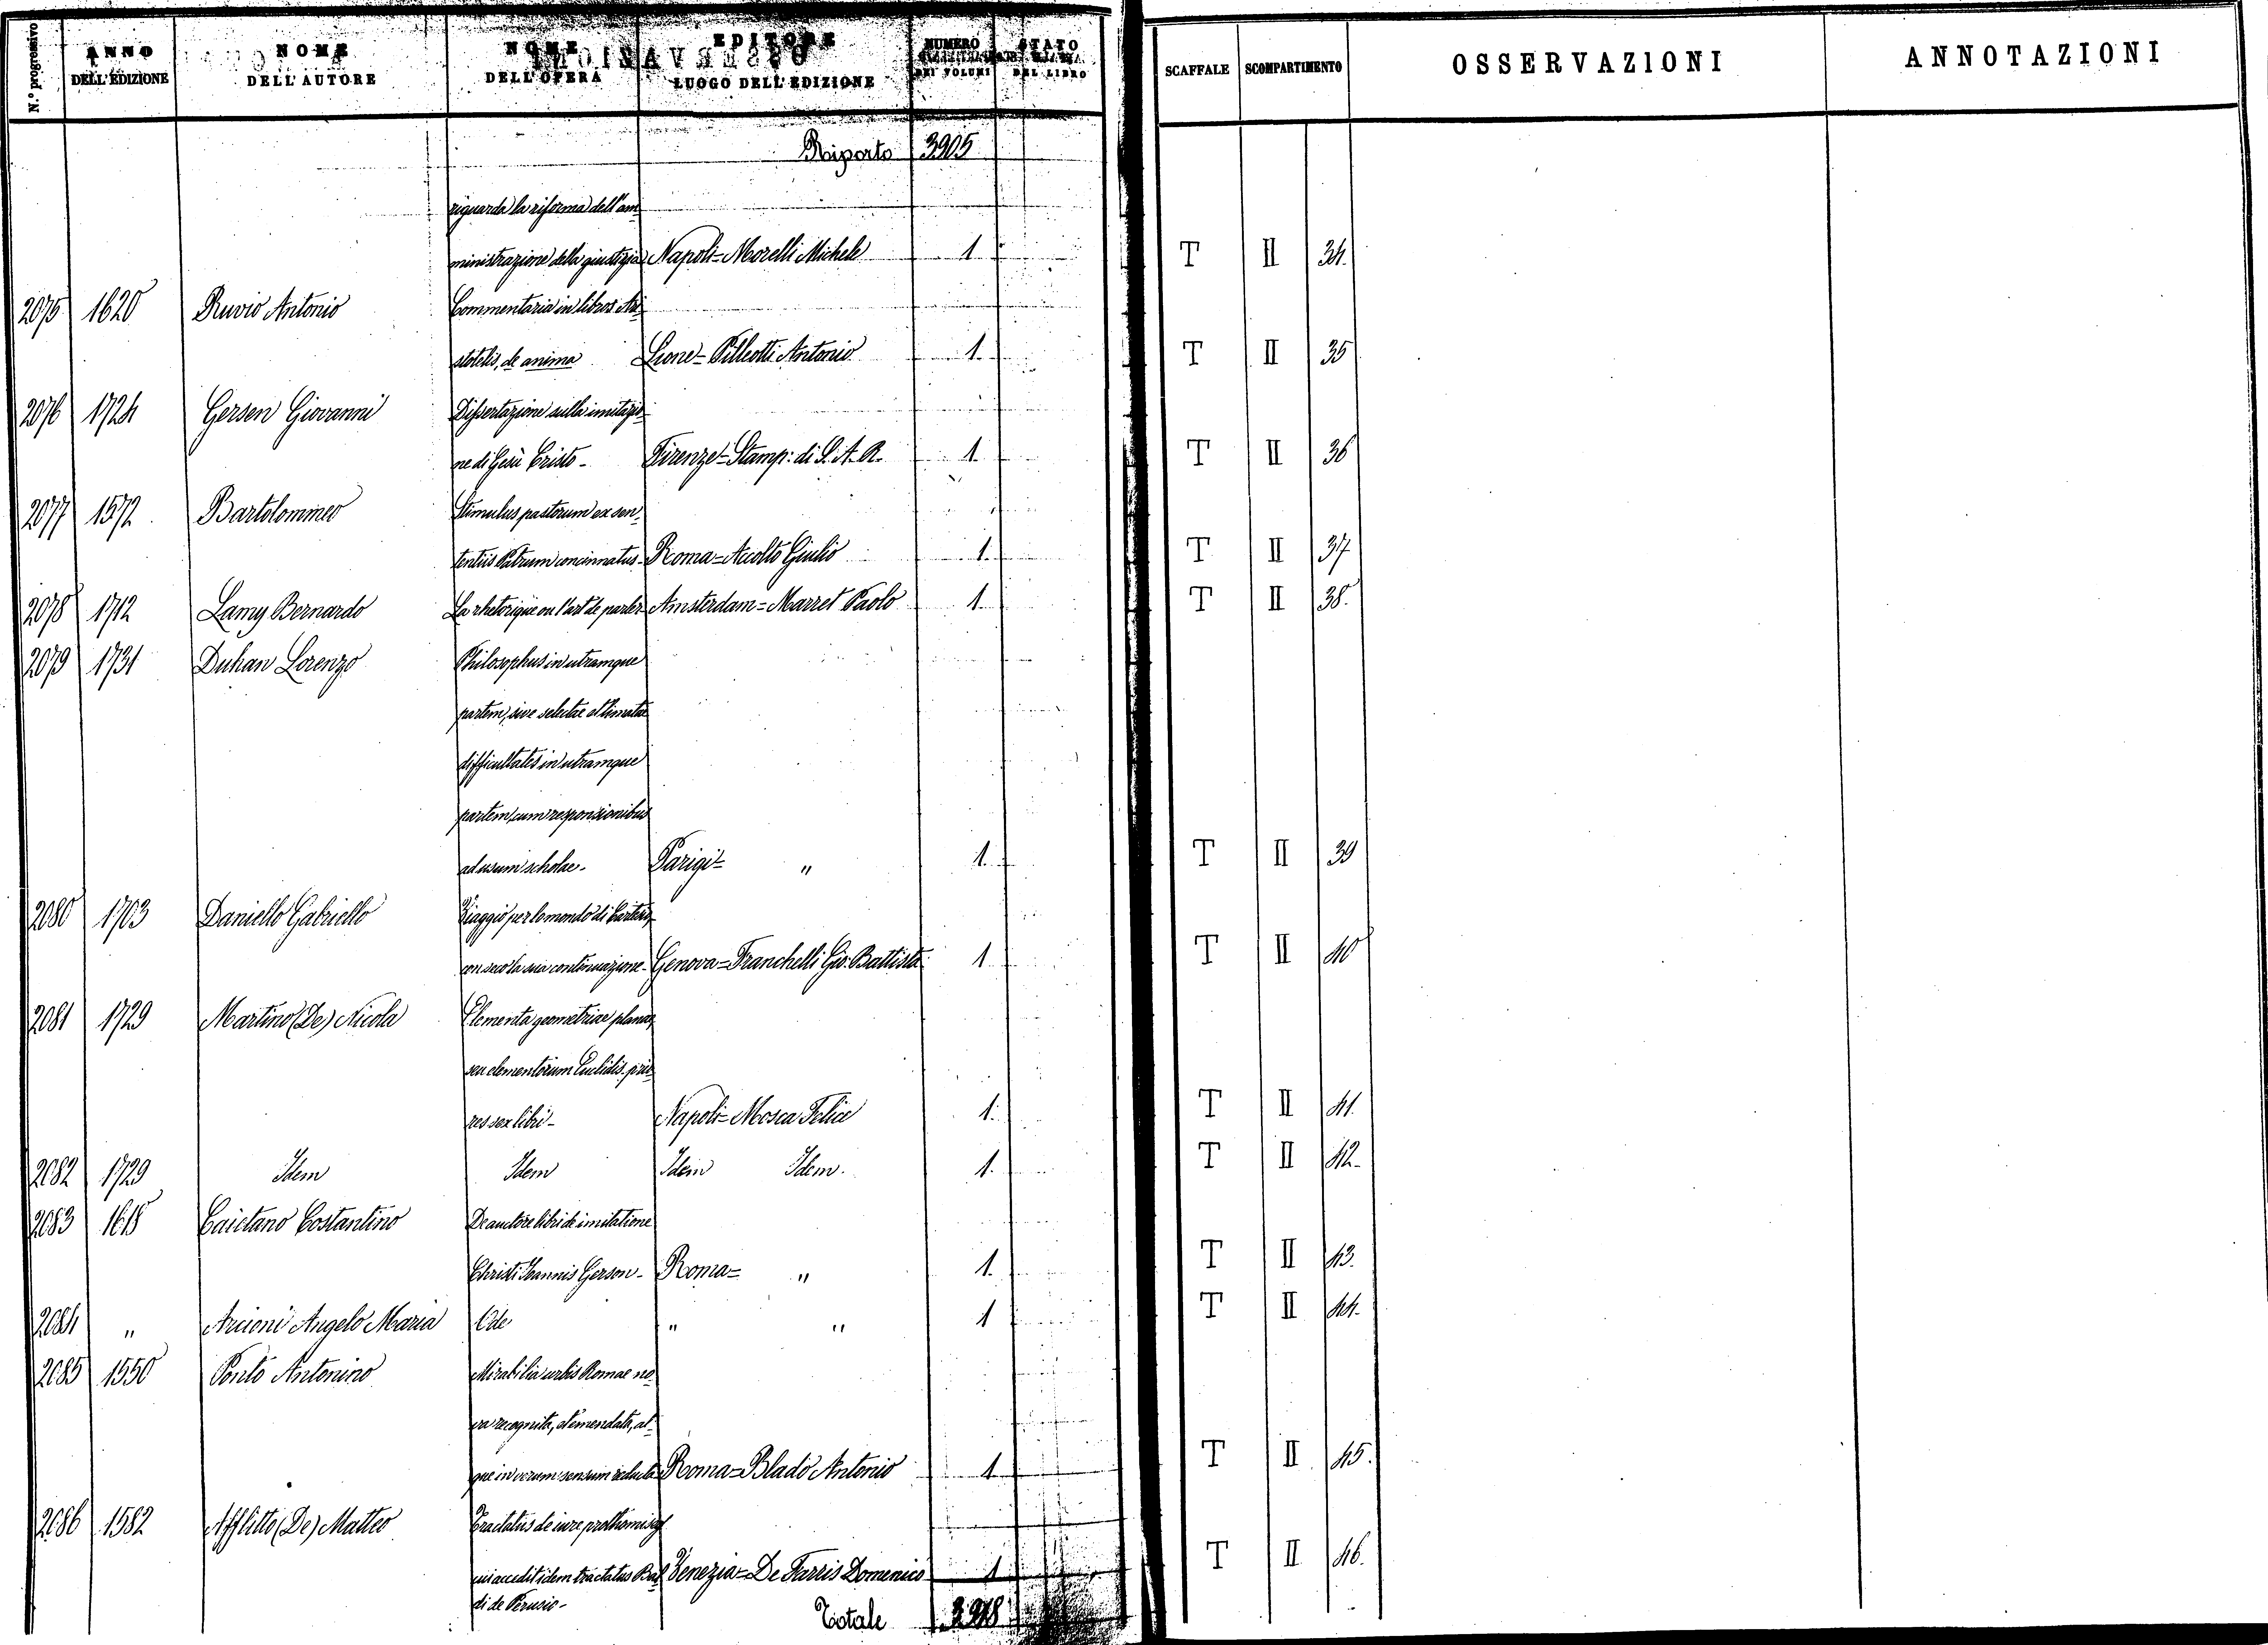 N.° progressivo | ANNO DELL'EDIZIONE | NOME DELL'AUTORE | NOME DELL'OPERA | EDITORE LUOGO DELL'EDIZIONE | NUMERO DEI VOLUMI | STATO DEL LIBRO | SCAFFALE | SCOMPARTIMENTO | OSSERVAZIONI | ANNOTAZIONI
Riporto 3905
riguarda la riforma dell'am-
ministrazione della giustizia Napoli = Morelli Michele 1 T II 34.
2075 1620 Ruvio Antonio Commentaria in libros Ari-
stotelis, de anima Lione = Pilleotti Antonio 1. T II 35
2076 1724 Gersen Giovanni Dissertazione sulla imitazio-
ne di Gesù Cristo - Firenze = Stamp: di S. A. R. 1. T II 36
2077 1572 Bartolommeo Stimulus pastorum ex sen-
tentiis Patrum concinnatus - Roma = Accolto Giulio 1. T II 37
2078 1712 Lamy Bernardo La rhetorique ou l'art de parler Amsterdam = Marret Paolo 1. T II 38.
2079 1731 Duhan Lorenzo Philosophus in utramque
partem, sive selectae et limatae
difficultates in utramque
partem, cum responsionibus
ad usum scholae - Parigi = " 1. T II 39
2080 1703 Daniello Gabriello Viaggio per lo mondo di Cartesio,
con seco la sua continuazione - Genova = Franchelli Gio: Battista 1 T II 40
2081 1729 Martino (De) Nicola Elementa geometriae planae,
seu elementorum Euclidis prio-
res sex libri - Napoli = Mosca Felice 1. T II 41.
2082 1729 Idem Idem Idem Idem. 1. T II 42.
2083 1618 Caietano Costantino De auctore libri de imitatione
Christi Ioannis Gerson - Roma = " 1. T II 43.
2084 " Arcioni Angelo Maria Ode " " 1 T II 44.
2085 1550 Ponto Antonino Mirabilia urbis Romae no-
va recognita, et emendata, at-
que in verum sensum reducta Roma = Blado Antonio 1 T II 45.
2086 1582 Afflitto (De) Matteo Tractatus de iure prothomiseos
cui accedit idem tractatus Bal- Venezia = De Farris Domenico 1 T II 46.
di de Perusio - Totale 3918